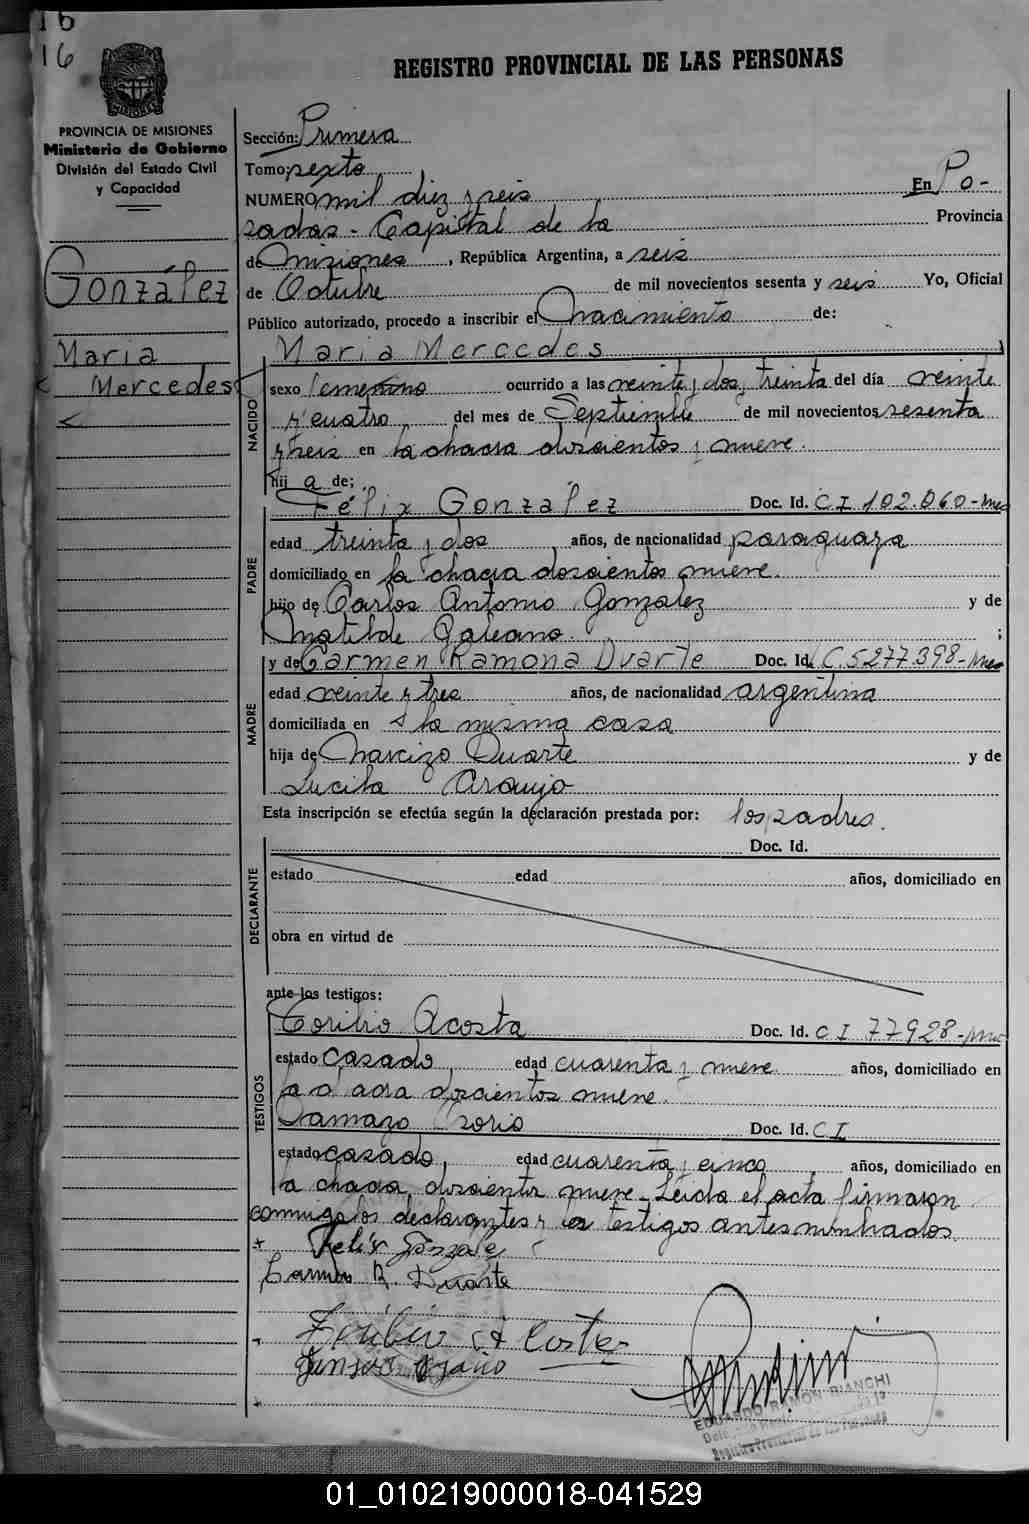 16
16
REGISTRO PROVINCIAL DE LAS PERSONAS
MISIONES
PROVINCIA DE MISIONES
Ministerio de Gobierno
División del Estado Civil
y Capacidad
González
Maria
Mercedes
Sección: Primera
Tomo; sexto
NUMERO mil diez y seis En Po-
sadas - Capital de la Provincia
de Misiones, República Argentina, a seis
de Octubre de mil novecientos sesenta y seis Yo, Oficial
Público autorizado, procedo a inscribir el Nacimiento de:
NACIDO
Maria Mercedes
sexo femenino ocurrido a las veinte y dos y treinta del día veinte
y cuatro del mes de Septiembre de mil novecientos sesenta
y seis en la chacra doscientos y nueve.
hij a de;
PADRE
Félix González Doc. Id. C I 102.060 - mes
edad treinta y dos años, de nacionalidad paraguaya
domiciliado en la chacra doscientos nueve.
hijo de Carlos Antonio Gonzalez y de
Matilde Galeano. ;
MADRE
y de Carmen Ramona Duarte Doc. Id. C. 5277.398 - mes
edad veinte y tres años, de nacionalidad argentina
domiciliada en la misma casa
hija de Narcizo Duarte y de
Lucila Araujo
Esta inscripción se efectúa según la declaración prestada por: los padres.
DECLARANTE
Doc. Id.
estado edad años, domiciliado en
obra en virtud de
ante los testigos:
TESTIGOS
Toribio Acosta Doc. Id. C I 77928 - mes
estado casado, edad cuarenta y nueve años, domiciliado en
la chacra doscientos nueve.
Damazo Osorio Doc. Id. C I
estado casado, edad cuarenta y cinco, años, domiciliado en
la chacra doscientos nueve - Leida el acta firmaron
conmigo los declarantes y los testigos antes nombrados.
+ Felix Gonzale
Carmen R. Duarte
Toribio A Costa
EDUARDO RAMON BIANCHI
Registro Provincial de las Personas
01_010219000018-041529